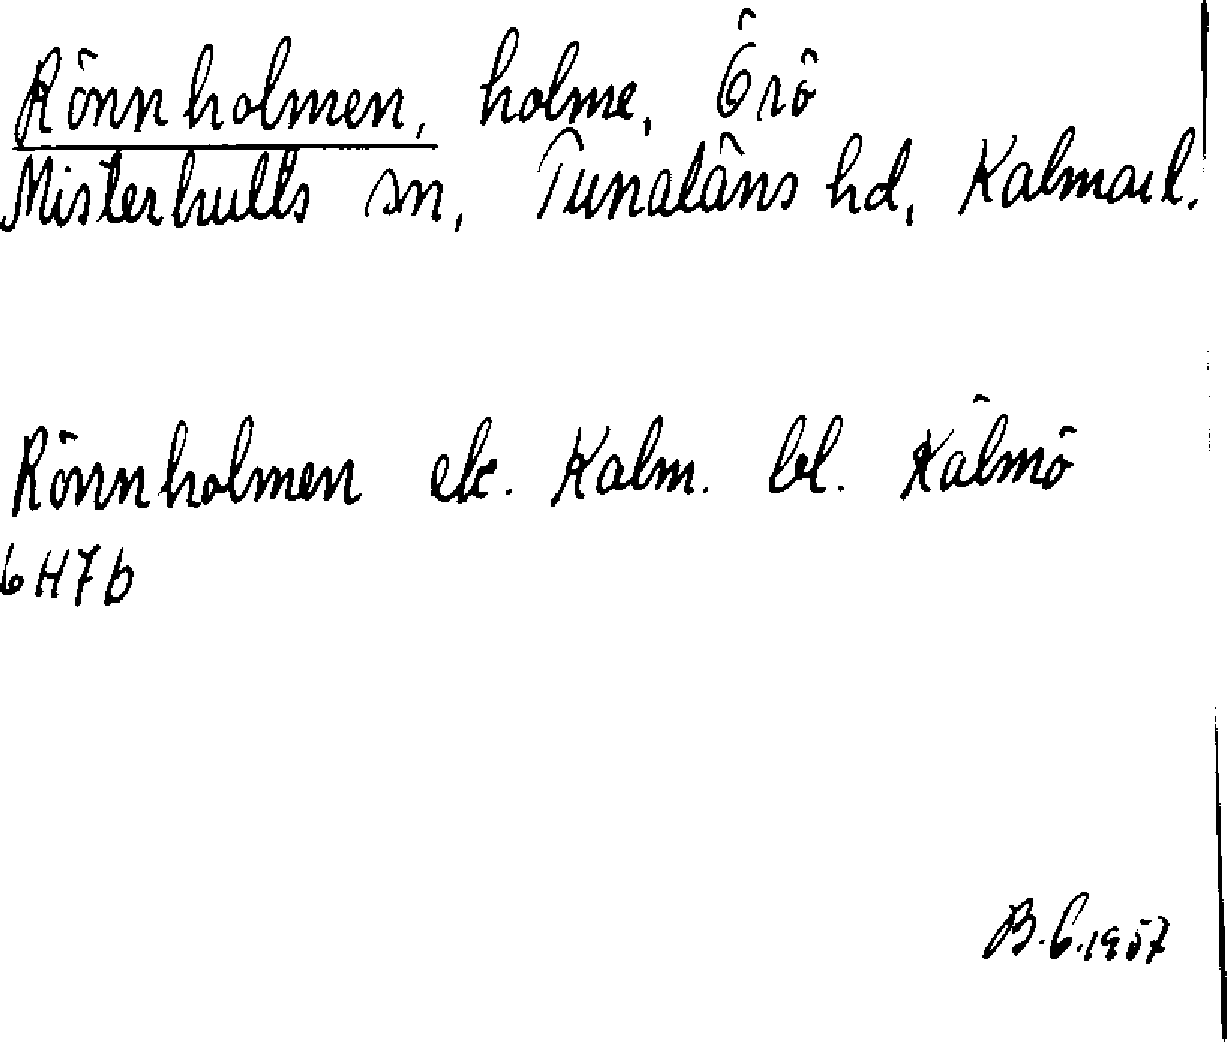 Rönnholmen, holme, Örö
Misterhults sn, Tunaläns hd, Kalmar l.
Rönnholmen ek. Kalm. bl. Kälmö
6H7b
B.C.1957